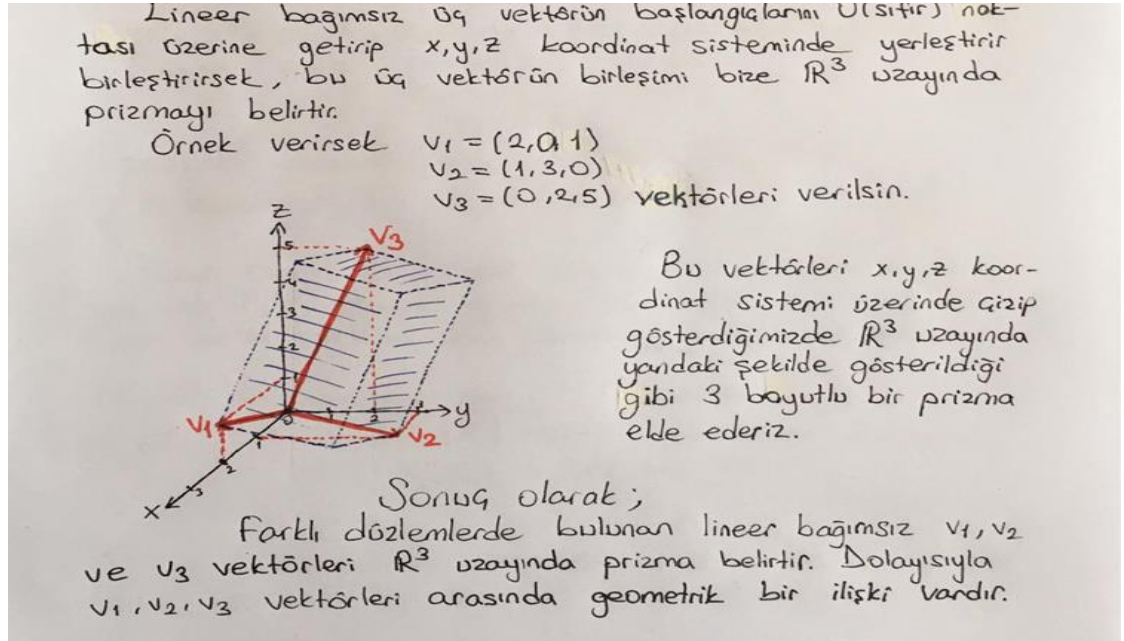 Lineer bağımsız üç vektörün başlangıçlarını O(sıfır) nok-
tası üzerine getirip x,y,z koordinat sisteminde yerleştirir
birleştirirsek, bu üç vektörün birleşimi bize R³ uzayında
prizmayı belirtir.
Örnek verirsek V1 = (2,0,1)
V2 = (1,3,0)
V3 = (0,2,5) vektörleri verilsin.
Z
5
V3
4
3
2
1
V1
0
1
2
3
y
V2
1
2
3
X
Bu vektörleri x,y,z koor-
dinat sistemi üzerinde çizip
gösterdiğimizde R³ uzayında
yandaki şekilde gösterildiği
gibi 3 boyutlu bir prizma
elde ederiz.
Sonuç olarak;
Farklı düzlemlerde bulunan lineer bağımsız V1, V2
ve V3 vektörleri R³ uzayında prizma belirtir. Dolayısıyla
V1, V2, V3 vektörleri arasında geometrik bir ilişki vardır.